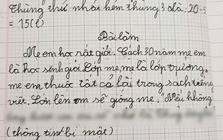 Thùng thứ nhất kém thùng 3 là: 20-5
= 15(l)
Bài làm
Mẹ em học rất giỏi. Cách 30 năm mẹ em
là học sinh giỏi. Lớp mẹ, mẹ là lớp trưởng,
mẹ em thuộc tất cả bài trong sách tiếng
việt. Lớn lên em sẽ giống mẹ, thầy không
(thông tin bí mật)